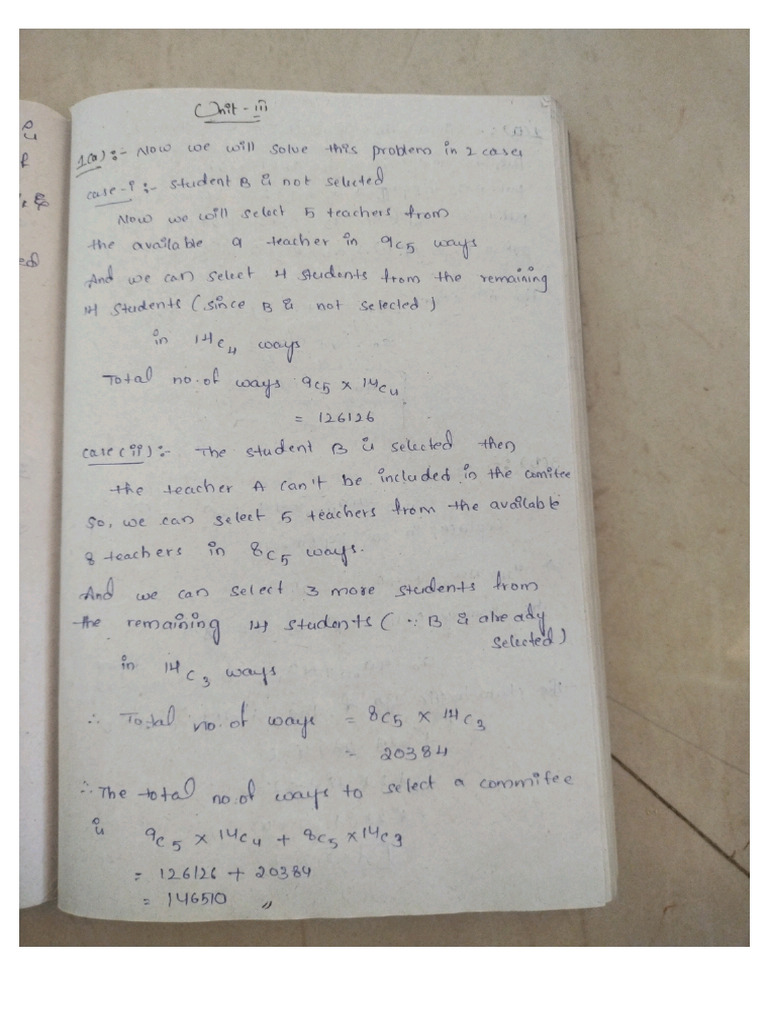 Unit - iii
1(a) :- Now we will solve this problem in 2 cases
case-i :- student B is not selected
Now we will select 5 teachers from
the available 9 teacher in 9C5 ways
And we can select 4 students from the remaining
14 students (since B is not selected)
in 14C4 ways
Total no.of ways 9C5 x 14C4
= 126126
case(ii) :- The student B is selected then
the teacher A can't be included in the comitee
so, we can select 5 teachers from the available
8 teachers in 8C5 ways.
And we can select 3 more students from
the remaining 14 students (∵ B is already
selected)
in 14C3 ways
∴ Total no.of ways = 8C5 x 14C3
= 20384
∴ The total no.of ways to select a commitee
is 9C5 x 14C4 + 8C5 x 14C3
= 126126 + 20384
= 146510 //
ed